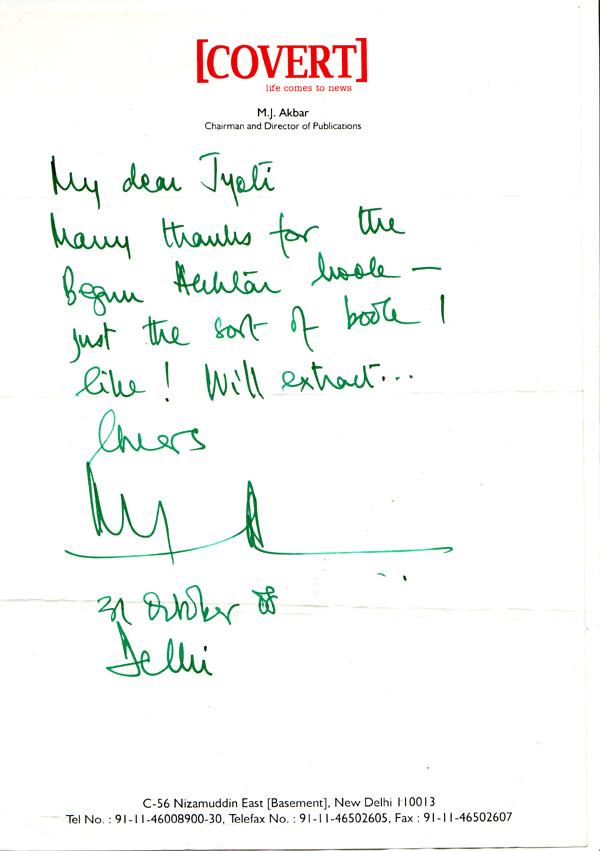 [COVERT]
life comes to news
M.J. Akbar
Chairman and Director of Publications
My dear Jyoti
Many thanks for the
Begum Akhtar book —
just the sort of book I
like! Will extract...
Cheers
31 October 08
Delhi
C-56 Nizamuddin East [Basement], New Delhi 110013
Tel No. : 91-11-46008900-30, Telefax No. : 91-11-46502605, Fax : 91-11-46502607